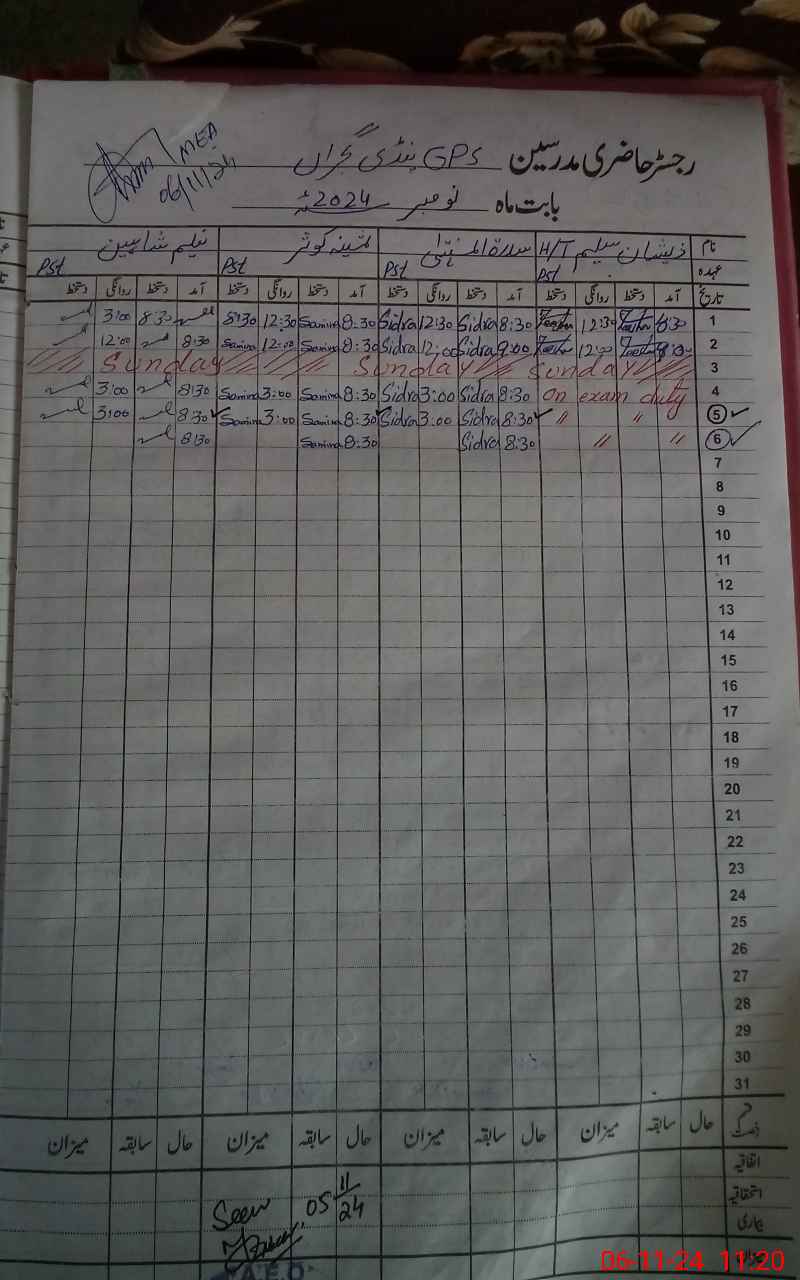 MEA
06/11/24
رجسٹر حاضری مدرسین GPS پنڈی گجراں
بابت ماہ نومبر 2024ء
نام ذیشان سلیم H/T سدرۃ المنتہیٰ ثمینہ کوثر نیلم شاہین
عہدہ Pst Pst Pst Pst
تاریخ آمد دستخط روانگی دستخط آمد دستخط روانگی دستخط آمد دستخط روانگی دستخط آمد دستخط روانگی دستخط
3:00 8:30 8:30 12:30 Samina 8:30 Sidra 12:30 Sidra 8:30 12:30 8:30 1
12:00 8:30 Samina 12:00 Samina 8:30 Sidra 12:00 Sidra 9:00 12:00 2
Sunday Sunday Sunday 3
3:00 8:30 Samina 3:00 Samina 8:30 Sidra 3:00 Sidra 8:30 on exam duty 4
3:00 8:30 Samina 3:00 Samina 8:30 Sidra 3:00 Sidra 8:30 " " 5
8:30 Samina 8:30 Sidra 8:30 " " 6
7
8
9
10
11
12
13
14
15
16
17
18
19
20
21
22
23
24
25
26
27
28
29
30
31
قسم رخصت حال سابقہ میزان حال سابقہ میزان حال سابقہ میزان حال سابقہ میزان
اتفاقیہ
استحقاقیہ
بیماری
میزان
Seen 05/11/24
A.E.O
06-11-24 11:20